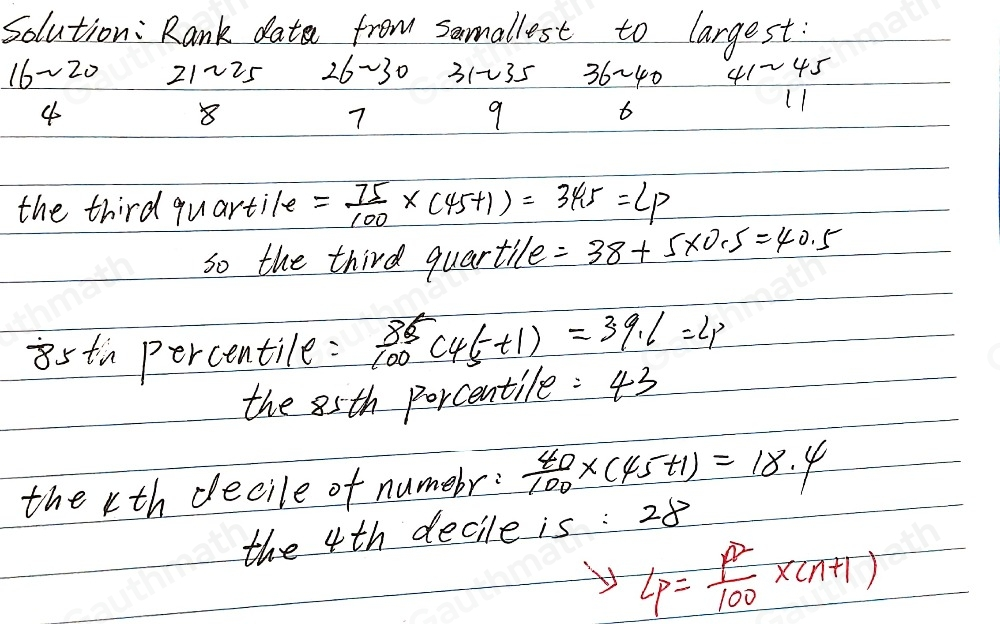 Solution: Rank data from samallest to largest:
16~20 21~25 26~30 31~35 36~40 41~45
4 8 7 9 6 11
the third quartile = 75/100 × (45+1) = 34.5 = Lp
so the third quartile = 38 + 5×0.5 = 40.5
85th percentile: 85/100 (45+1) = 39.1 = Lp
the 85th porcentile: 43
the kth decile of numebr: 40/100 × (45+1) = 18.4
the 4th decile is: 28
↘ Lp = P/100 × (n+1)